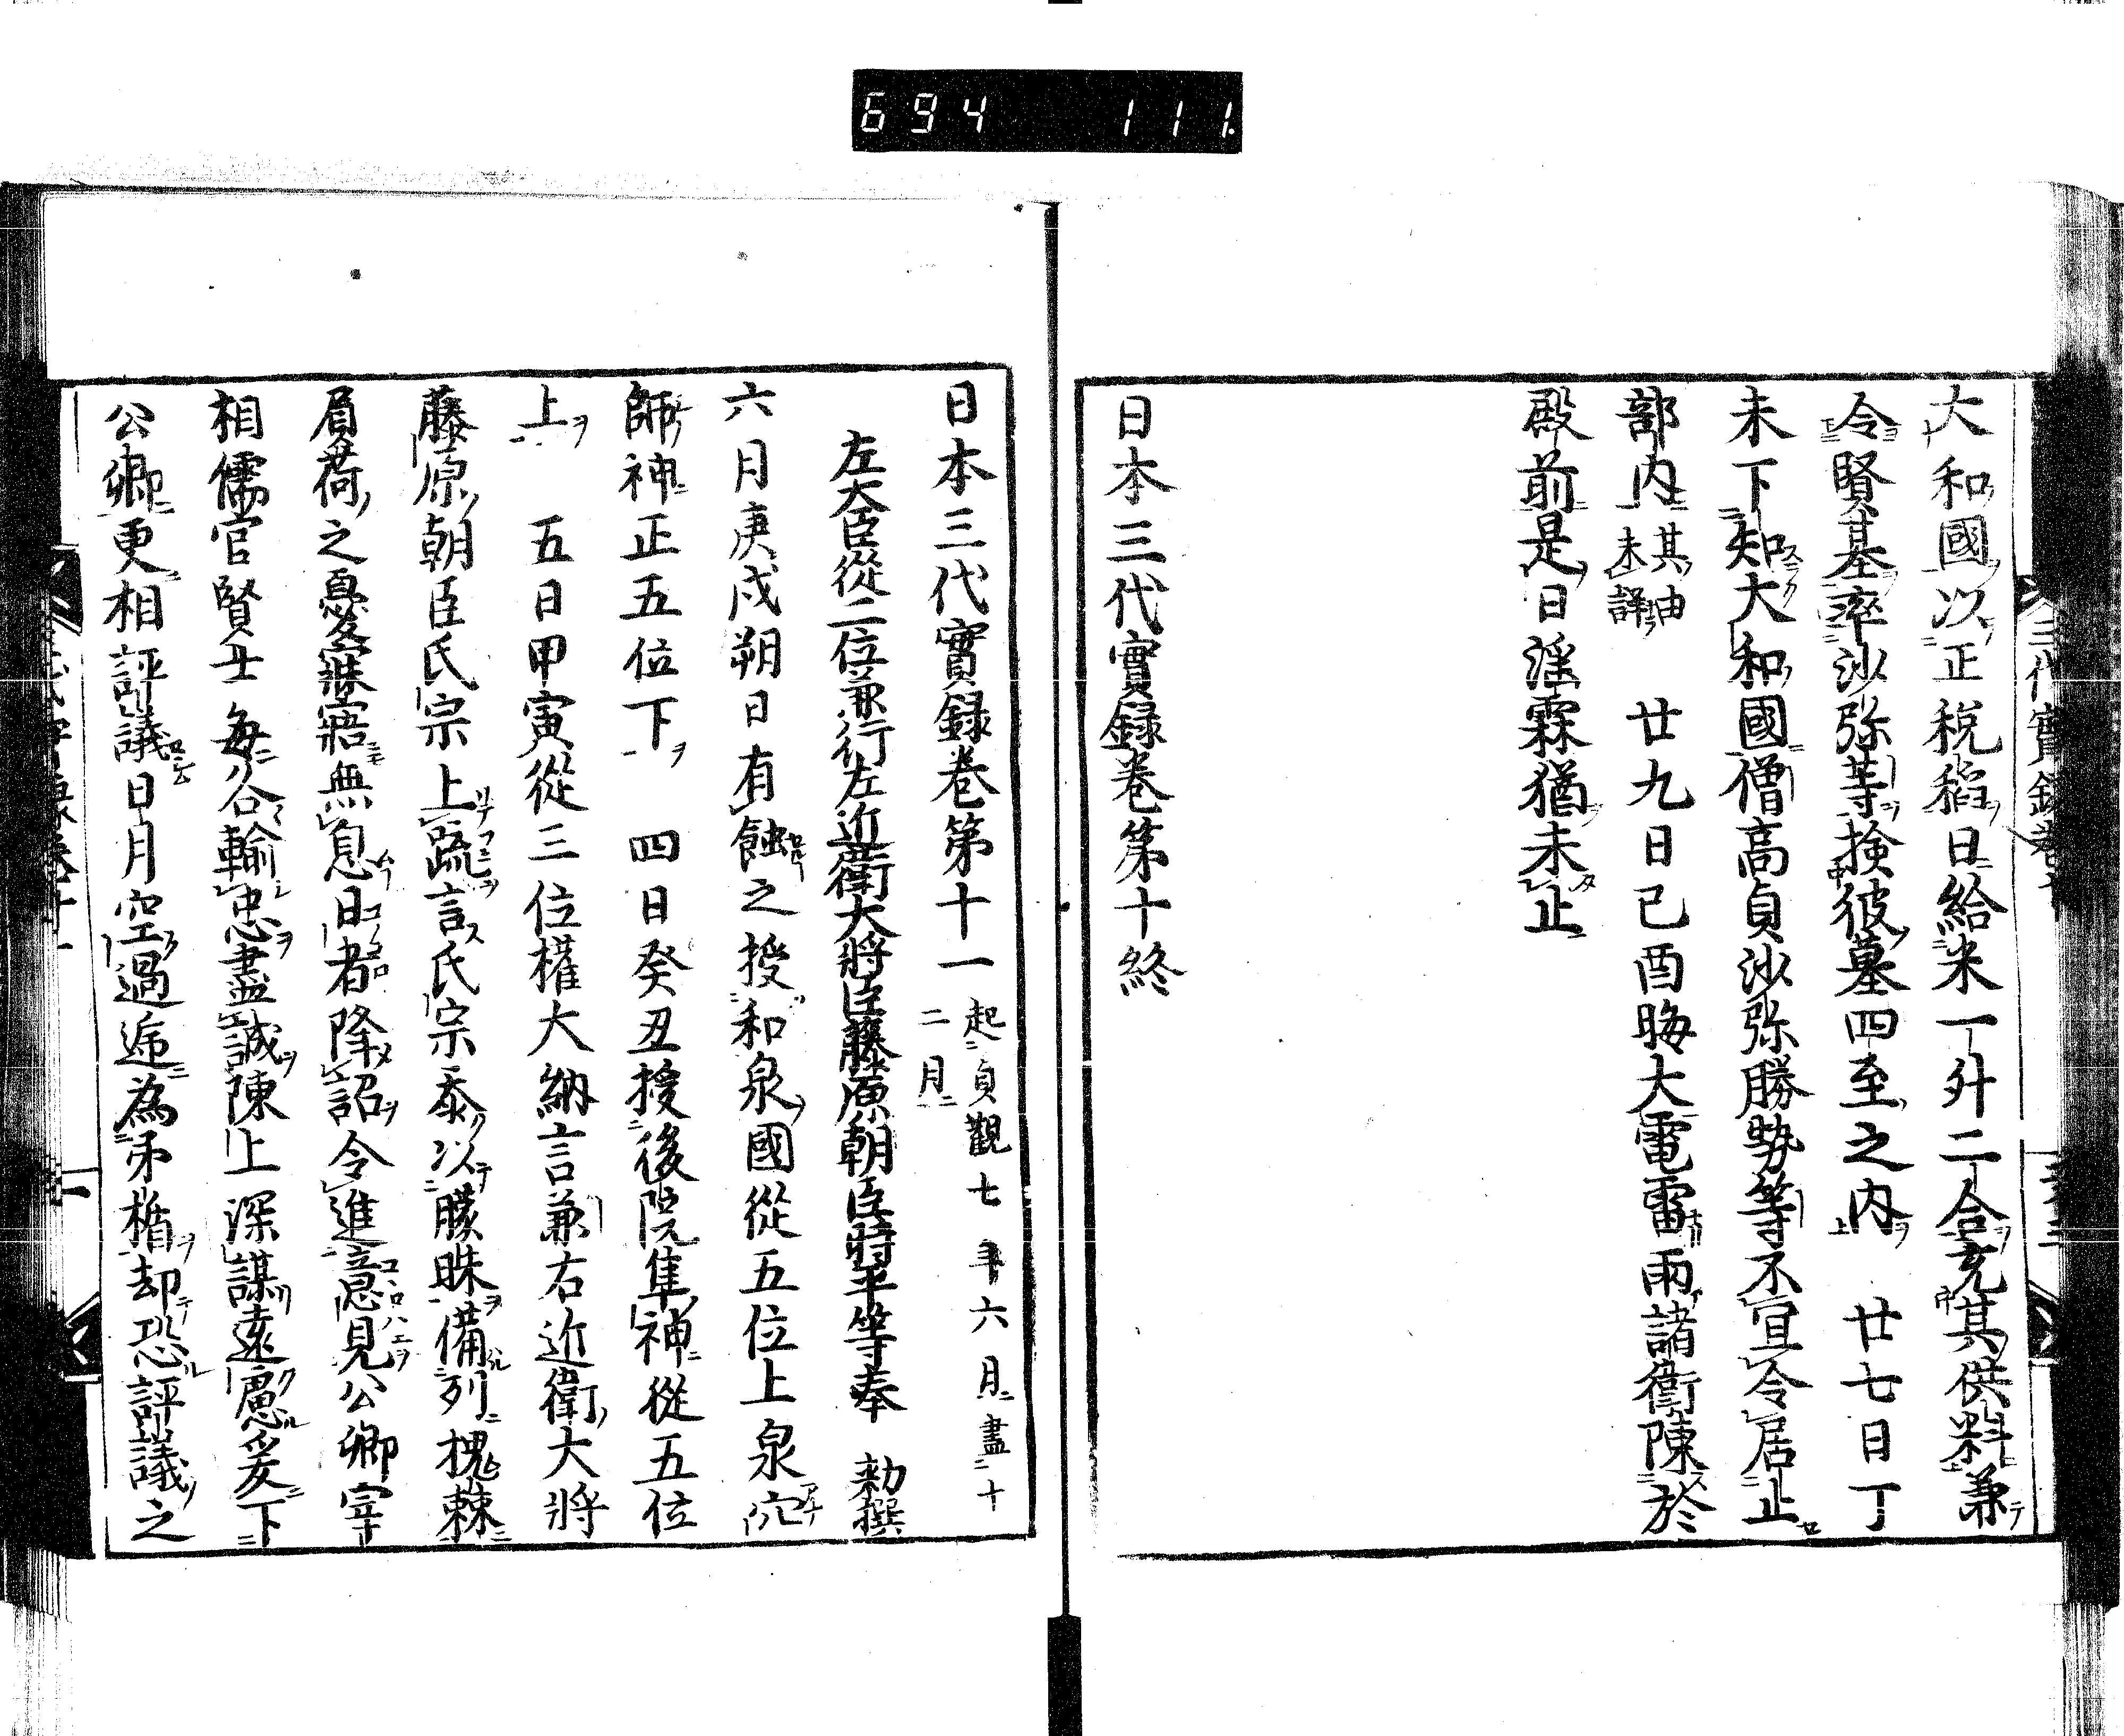 694 111
大和國以正税稻日給米一升二合充其供料兼
令賢基率沙弥等捡彼墓四至之内 廿七日丁
未下知大和國僧高貞沙弥勝勢等不宜令居止
部内其由未詳 廿九日己酉晦大電雷雨諸衛陳於
殿前是日淫霖猶未止
日本三代實録卷第十終
日本三代實録卷第十一起貞觀七年六月盡十二月
左大臣從二位兼行左近衛大將臣藤原朝臣時平等奉 勅撰
六月庚戌朔日有蝕之授和泉國從五位上泉穴
師神正五位下 四日癸丑授後院隼神從五位
上 五日甲寅從三位權大納言兼右近衛大將
藤原朝臣氏宗上疏言氏宗忝以朦昧備列槐棘
肩荷之憂寐寤無息日者降詔令進意見公卿宰
相儒官賢士每各輸忠盡誠陳上深謀遠慮爰下
公卿更相評議日月空過逅為矛楯却恐評議之